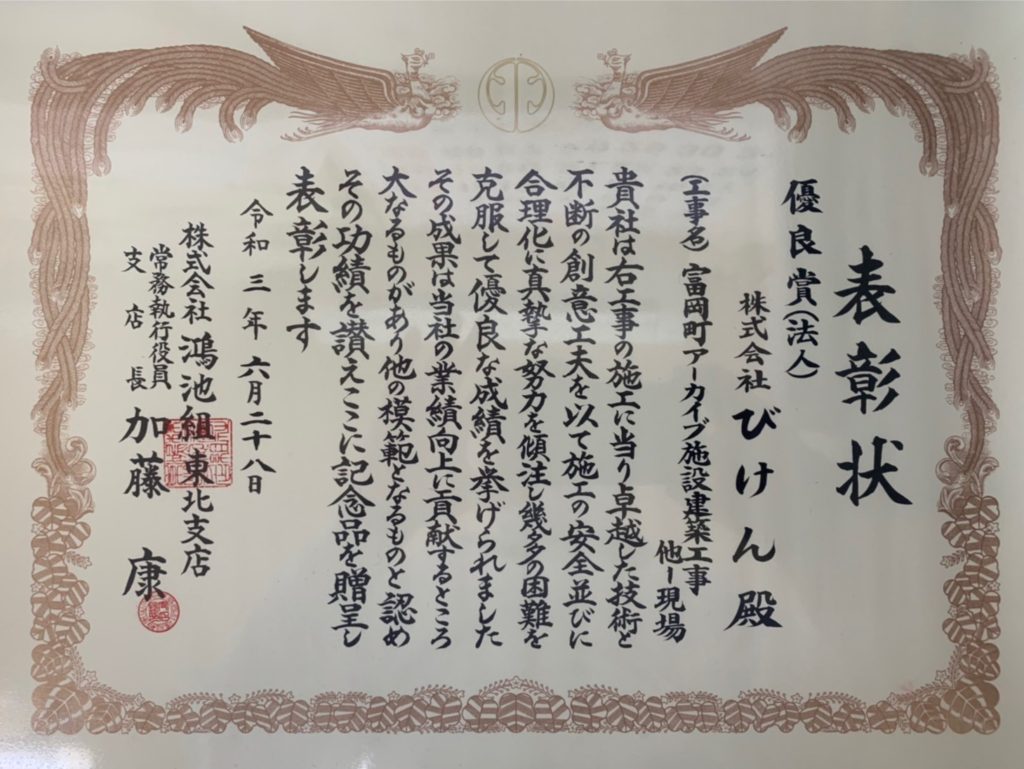 表彰状
優良賞(法人)
株式会社 びけん殿
(工事名) 富岡町アーカイブ施設建築工事
他一現場
貴社は右工事の施工に当り卓越した技術と
不断の創意工夫を以て施工の安全並びに
合理化に真摯な努力を傾注し幾多の困難を
克服して優良な成績を挙げられました
その成果は当社の業績向上に貢献するところ
大なるものがあり他の模範となるものと認め
その功績を讃えここに記念品を贈呈し
表彰します
令和三年六月二十八日
株式会社 鴻池組東北支店
常務執行役員
支店長 加藤 康